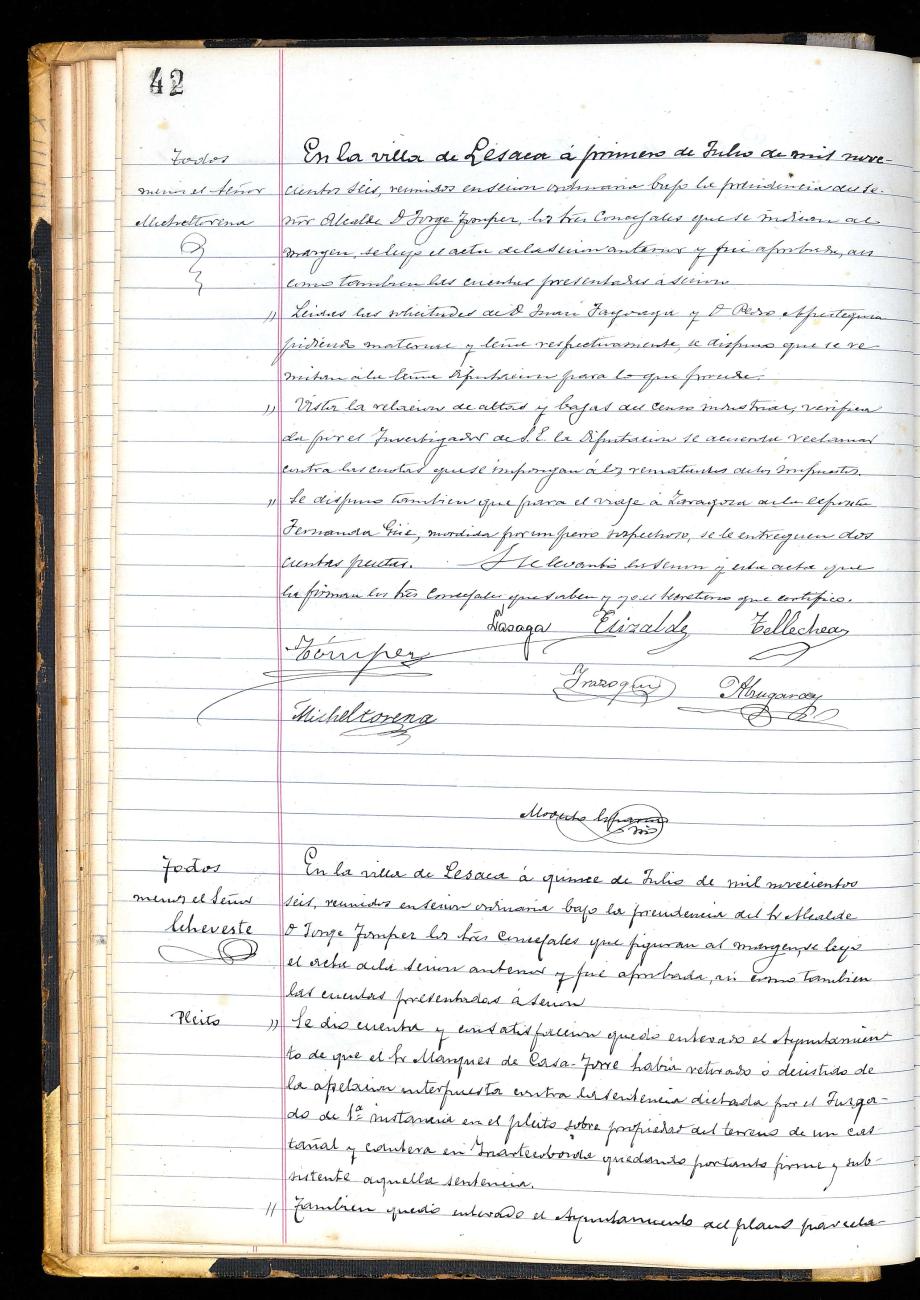 42
Todos
menos el Señor
Micheltorena
En la villa de Lesaca á primero de Julio de mil nove-
cientos seis, reunidos en sesion ordinaria bajo la presidencia del Se-
ñor Alcalde D Jorge Tomper, los tres Concejales que se indican al
margen, se leyo el acta de la sesion anterior y fué aprobada, asi
como tambien las cuentas presentadas á sesion
" Leidas las solicitudes de D Juan Fagoaga y D Pedro Apestegui
pidiendo materiae y leña respectivamente, se dispuso que se re-
mitan á la Excma Diputacion para lo que procede.
" Vista la relacion de altas y bajas del censo industrial, verifica
da por el Investigador de S.E. la Diputacion se acuerda reclamar
contra las cuotas que se impongan á los rematantes de los impuestos.
" Se dispuso tambien que para el viaje á Zaragoza de la esposita
Fernanda Goñi, mordida por un perro sospechoso, se le entreguen dos
cientas pesetas. Y se levantó la sesion y esta acta que
la firman los tres Concejales que saben y yo el Secretario que certifico.
Lasaga Elizalde Tellechea
Tómper
Irazoqui Abugarday
Micheltorena
Modesto
Todos
menos el Señor
Echeveste
En la villa de Lesaca á quince de Julio de mil novecientos
seis, reunidos en sesion ordinaria bajo la presidencia del Sr Alcalde
D Jorge Tomper los tres Concejales que figuran al margen, se leyo
el acta de la sesion anterior y fué aprobada, asi como tambien
las cuentas presentadas á sesion
Pleito
" Se dio cuenta y con satisfaccion quedó enterado el Ayuntamien
to de que el Sr Marques de Casa-Torre habia retirado ó desistido de
la apelacion interpuesta contra la sentencia dictada por el Juzga-
do de 1ª instancia en el pleito sobre propiedad del terreno de un cas
tañal y cantera en quedando por tanto firme y sub-
sistente aquella sentencia.
" Tambien quedó enterado el Ayuntamiento del plano parcela-